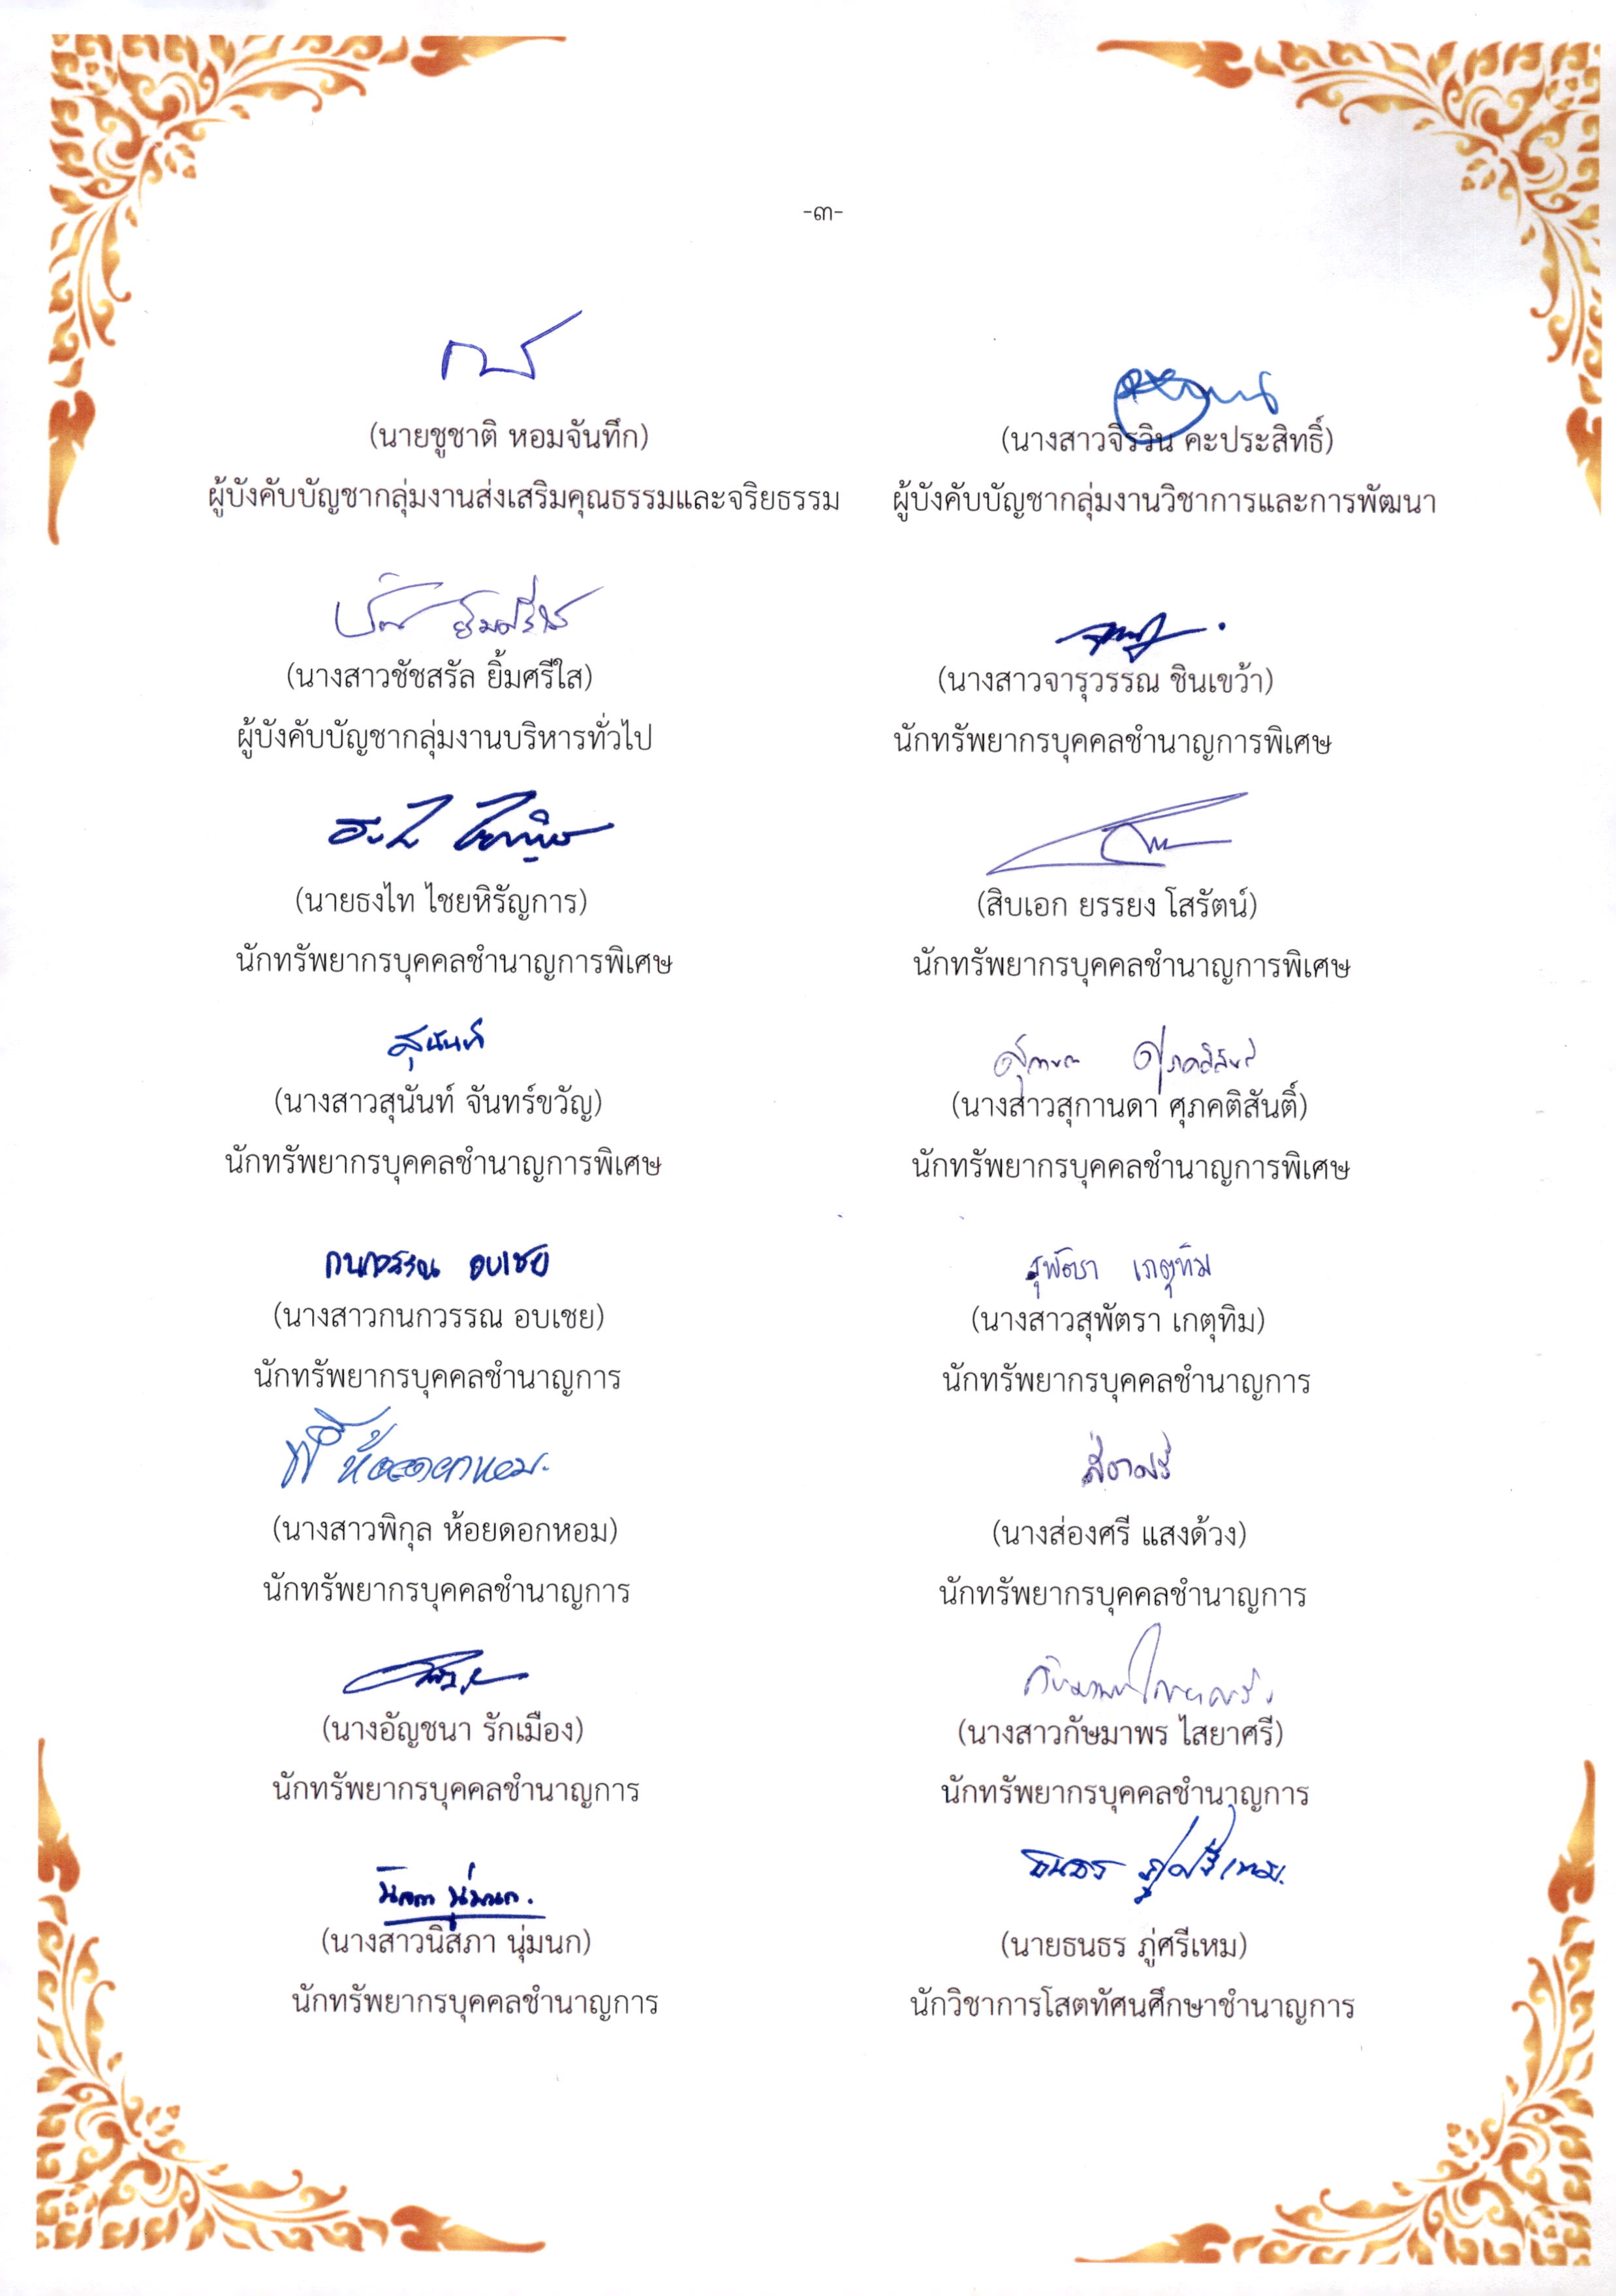 -๓-
(นายชูชาติ หอมจันทึก)
ผู้บังคับบัญชากลุ่มงานส่งเสริมคุณธรรมและจริยธรรม
(นางสาวจิรวิน คะประสิทธิ์)
ผู้บังคับบัญชากลุ่มงานวิชาการและการพัฒนา
(นางสาวชัชสรัล ยิ้มศรีใส)
ผู้บังคับบัญชากลุ่มงานบริหารทั่วไป
(นางสาวจารุวรรณ ชินเขว้า)
นักทรัพยากรบุคคลชำนาญการพิเศษ
(นายธงไท ไชยหิรัญการ)
นักทรัพยากรบุคคลชำนาญการพิเศษ
(สิบเอก ยรรยง โสรัตน์)
นักทรัพยากรบุคคลชำนาญการพิเศษ
สุนันท์
(นางสาวสุนันท์ จันทร์ขวัญ)
นักทรัพยากรบุคคลชำนาญการพิเศษ
(นางสาวสุกานดา ศุภคติสันติ์)
นักทรัพยากรบุคคลชำนาญการพิเศษ
กนกวรรณ อบเชย
(นางสาวกนกวรรณ อบเชย)
นักทรัพยากรบุคคลชำนาญการ
สุพัตรา เกตุทิม
(นางสาวสุพัตรา เกตุทิม)
นักทรัพยากรบุคคลชำนาญการ
ห้อยดอกหอม
(นางสาวพิกุล ห้อยดอกหอม)
นักทรัพยากรบุคคลชำนาญการ
ส่องศรี
(นางส่องศรี แสงด้วง)
นักทรัพยากรบุคคลชำนาญการ
(นางอัญชนา รักเมือง)
นักทรัพยากรบุคคลชำนาญการ
(นางสาวกัษมาพร ไสยาศรี)
นักทรัพยากรบุคคลชำนาญการ
นิสภา นุ่มนก
(นางสาวนิสภา นุ่มนก)
นักทรัพยากรบุคคลชำนาญการ
ธนธร ภู่ศรีเหม
(นายธนธร ภู่ศรีเหม)
นักวิชาการโสตทัศนศึกษาชำนาญการ